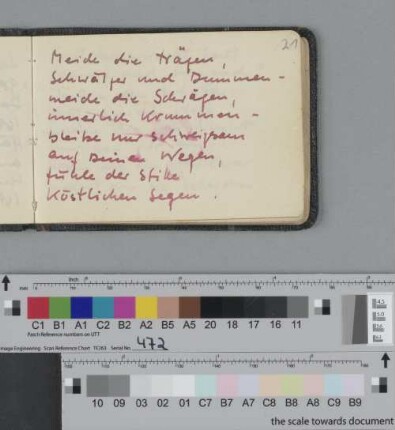 21
Meide die Trägen,
Schwätzer und Dummen -
meide die Schrägen,
innerlich Krummen -
bleibe nur schweigsam
auf Deinen Wegen,
fühle der Stille
köstlichen Segen.
C1 B1 A1 C2 B2 A2 B5 A5 20 18 17 16 11
Patch Reference numbers on UTT
Image Engineering Scan Reference Chart TE263 Serial No. 472
10 09 03 02 01 C7 B7 A7 C8 B8 A8 C9 B9
the scale towards document